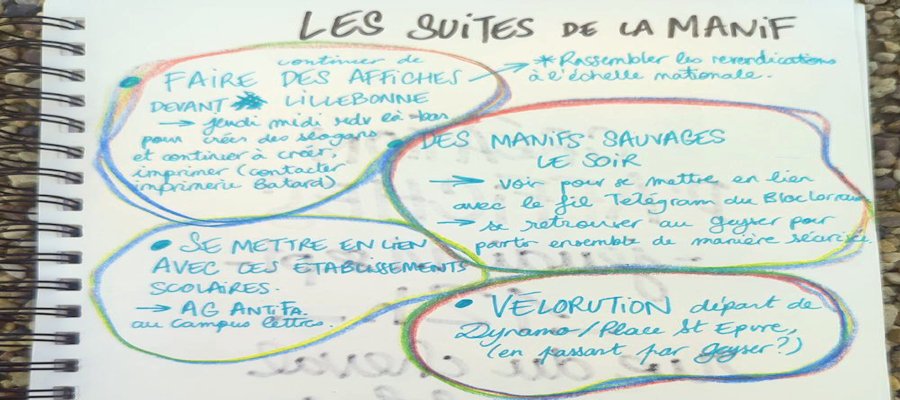 LES SUITES DE LA MANIF
continuer de
• FAIRE DES AFFICHES
DEVANT LILLEBONNE
→ jeudi midi rdv là-bas
pour créer des slogans
et continuer à créer,
imprimer (contacter
imprimerie Batard)
* Rassembler les revendications
à l'échelle nationale.
• DES MANIFS SAUVAGES
LE SOIR
→ voir pour se mettre en lien
avec le fil Telégram du Bloc lorrain
→ se retrouver au geyser pour
partir ensemble de manière sécurisée
• SE METTRE EN LIEN
AVEC DES ETABLISSEMENTS
SCOLAIRES.
→ AG ANTIFA.
au campus lettres.
• VÉLORUTION départ de
Dynamo/Place St Epvre,
(en passant par geyser?)